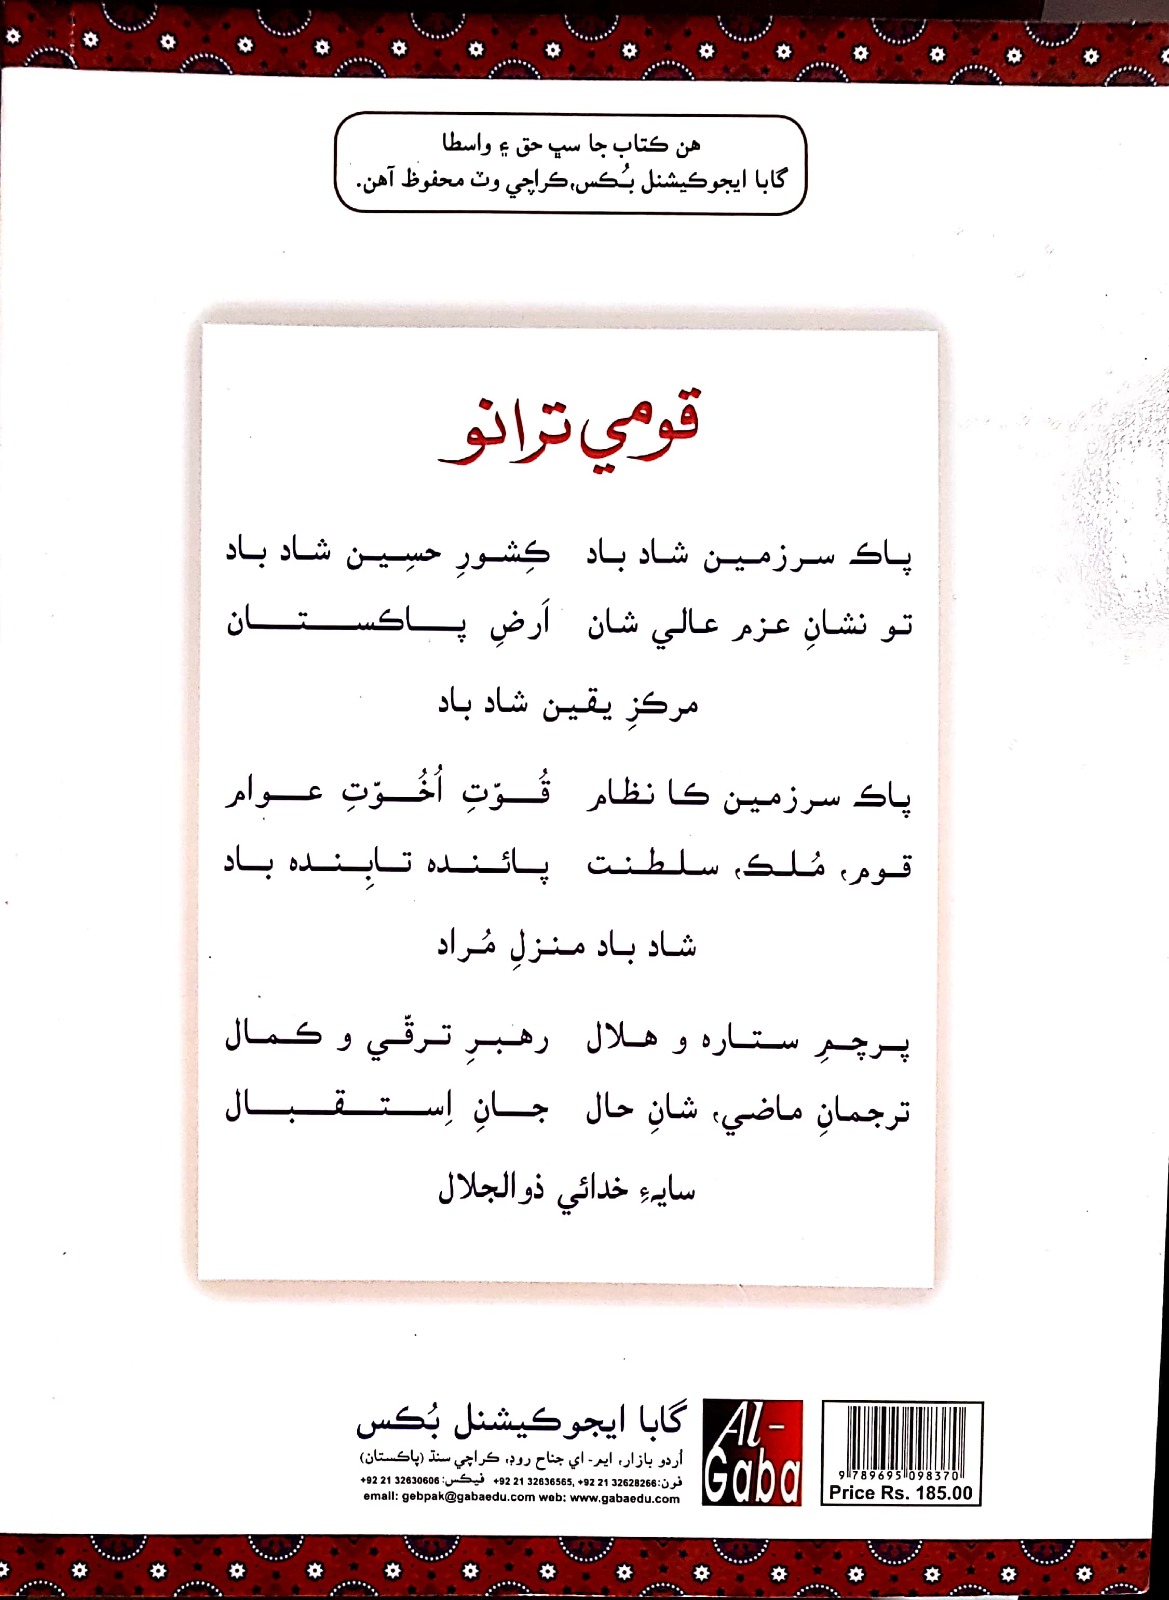 هن ڪتاب جا سڀ حق ۽ واسطا
گابا ايجوڪيشنل بُڪس،ڪراچي وٽ محفوظ آهن.
قومي ترانو
پاڪ سرزمين شاد باد ڪِشورِ حسِين شاد باد
تو نشانِ عزم عالي شان اَرضِ پاڪستان
مرڪزِ يقين شاد باد
پاڪ سرزمين ڪا نظام قُوّتِ اُخُوّتِ عوام
قوم، مُلڪ، سلطنت پائنده تابِنده باد
شاد باد منزلِ مُراد
پرچمِ ستاره و هلال رهبرِ ترقّي و ڪمال
ترجمانِ ماضي، شانِ حال جانِ اِستقبال
سايهءِ خدائي ذوالجلال
گابا ايجوڪيشنل بُڪس
اُردو بازار، ايم- اي جناح روڊ، ڪراچي سنڌ (پاڪستان)
فون: +92 21 32636565, +92 21 32628266 فيڪس: +92 21 32630606
email: gebpak@gabaedu.com web: www.gabaedu.com
Al-
Gaba
9 789695 098370
Price Rs. 185.00